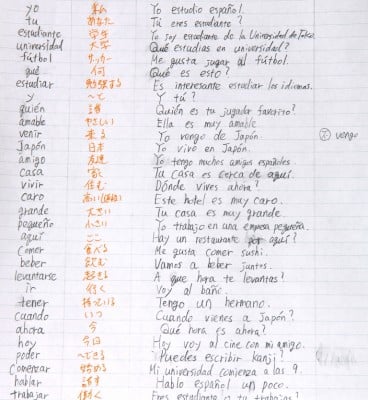 yo 私 Yo estudio español.
tu あなた Tú eres estudiante?
estudiante 学生 Yo soy estudiante de la Universidad de
universidad 大学 Qué estudias en universidad?
fútbol サッカー Me gusta jugar al fútbol.
qué 何 Qué es esto?
estudiar 勉強する Es interesante estudiar los idiomas.
y Y tú?
quién 誰 Quién es tu jugador favorito?
amable やさしい Ella es muy amable
venir 来る Yo vengo de Japón. vengo
Japón 日本 Yo vivo en Japón.
amigo 友達 Yo tengo muchos amigos españoles.
casa 家 Tu casa es cerca de aquí.
vivir 住む Dónde vives ahora?
caro 高い(値段) Este hotel es muy caro.
grande 大きい Tu casa es muy grande.
pequeño 小さい Yo trabajo en una empresa pequeña.
aquí ここ Hay un restaurante aquí?
comer 食べる Me gusta comer sushi.
beber 飲む Vamos a beber juntos.
levantarse 起きる A que hora te levantas?
ir 行く Voy al baño.
tener 持っている Tengo un hermano.
cuando いつ Cuando vienes a Japón?
ahora 今 Qué hora es ahora?
hoy 今日 Hoy voy al cine con mi amigo.
poder ~できる Puedes escribir kanji?
comenzar 始める Mi universidad comienza a las 9.
hablar 話す Hablo español un poco.
trabajar 働く Eres estudiante o trabajas?